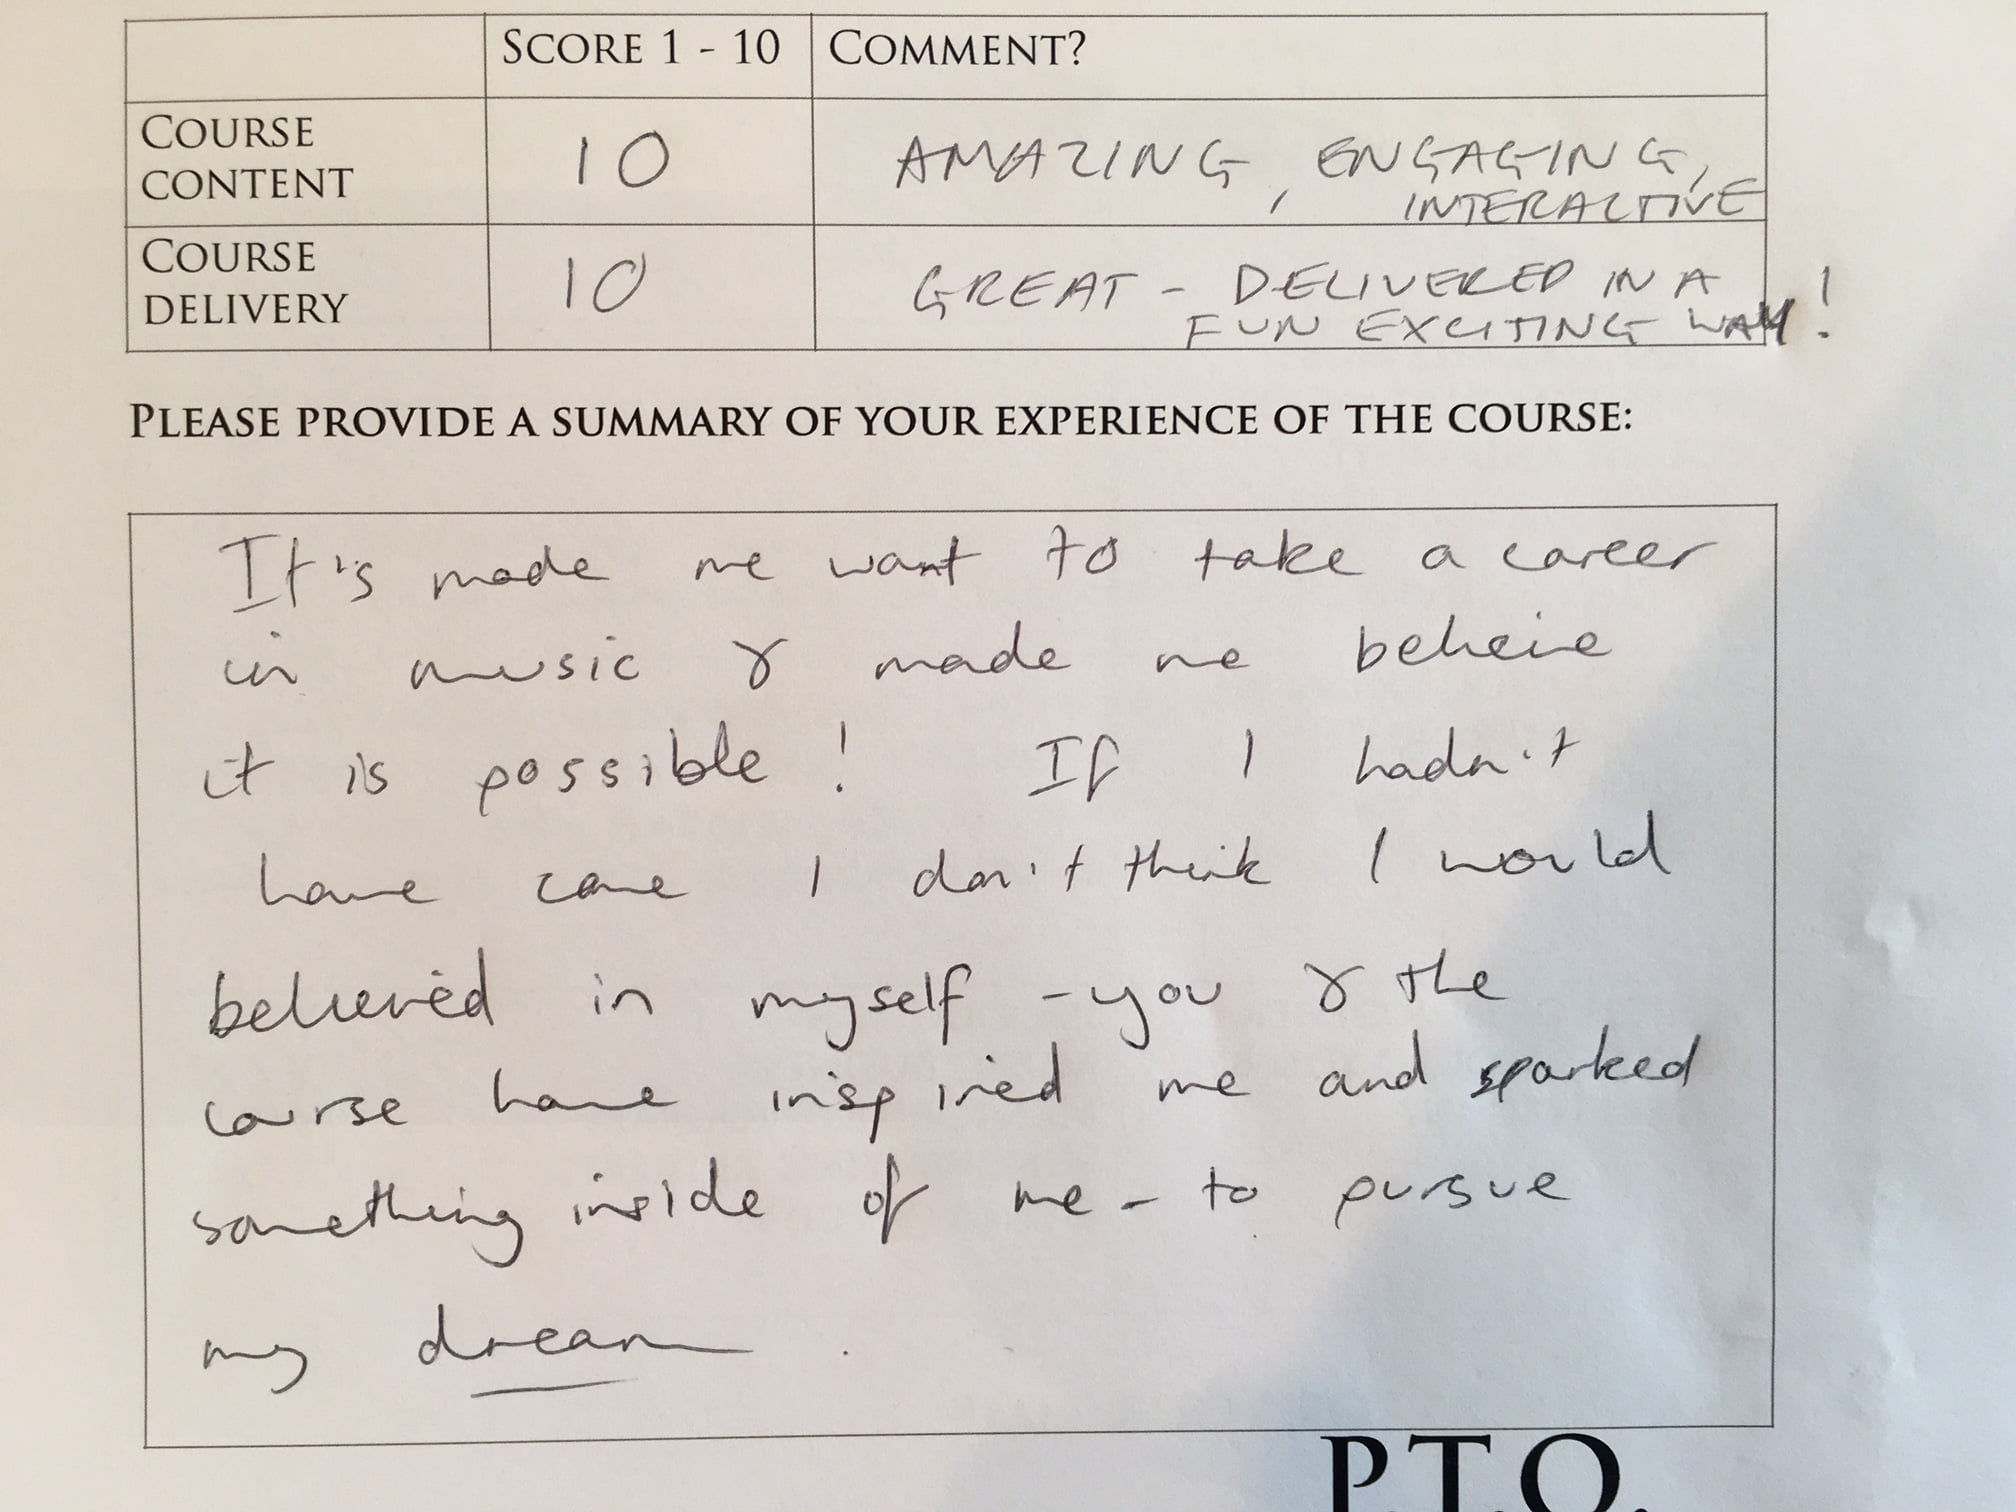 SCORE 1 - 10 COMMENT?
COURSE
CONTENT
10
AMAZING, ENGAGING,
INTERACTIVE
COURSE
DELIVERY
10
GREAT - DELIVERED IN A
FUN EXCITING WAY!
PLEASE PROVIDE A SUMMARY OF YOUR EXPERIENCE OF THE COURSE:
It's made me want to take a career
in music & made me believe
it is possible! If I hadn't
have come I don't think I would
believed in myself - you & the
course have inspired me and sparked
something inside of me - to pursue
my dream.
P.T.O.